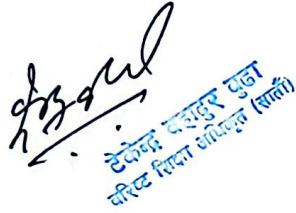 टेकेन्द्र बहादुर बुढा
वरिष्ट शिक्षा अधिकृत (सातौं)